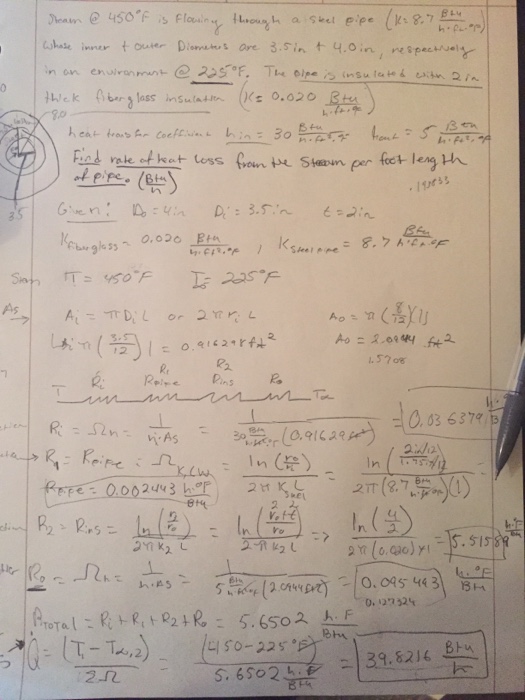 Steam @ 450°F is flowing through a steel pipe (K= 8.7 Btu/h·ft·°F)
whose inner + outer Diameters are 3.5in + 4.0in, respectively
in an environment @ 225°F. The pipe is insulated with 2in
thick fiberglass insulation (K= 0.020 Btu/h·ft·°F)
8.0
heat transfer coefficient hin = 30 Btu/h·ft²·°F hout = 5 Btu/h·ft²·°F
Find rate of heat loss from the steam per foot length
of pipe. (Btu/h)
3.5
Given: Do = 4in Di = 3.5in t = 2in
Kfiberglass = 0.020 Btu/h·ft²·°F , Ksteel pipe = 8.7 Btu/h·ft·°F
Steam T = 450°F = 225°F
As Ai = πDiL or 2πriL Ao = π(8/12)(1)
π(3.5/12)1 = 0.91629 ft² Ao = 2.0944 ft²
R1 R2
T Ri Rpipe Rins Ro T∞
Ri = = 1/h·As = 1/30 Btu (0.91629 ft²) = 0.036379
R1 = Rpipe = = ln(ro/ri)/2πK L = ln(2in/12/1.75/12)/2π(8.7 Btu)(1) =
Rpipe = 0.002443 h·°F/Btu
R2 = Rins = ln( /ro)/2πK2 L = ln(ro+t/ro)/2πK2 L => ln(4/2)/2π(0.020)×1 = 5.5158
Ro = = 1/h·As = 1/5 Btu (2.0944 ft²) = 0.095493 h·°F/Btu
RTOTAL = Ri + R1 + R2 + Ro = 5.6502 h·F/Btu
Q̇ = (T1 - T∞,2)/ΣΩ = (450-225°F)/5.6502 h·F/Btu = 39.8216 Btu/h